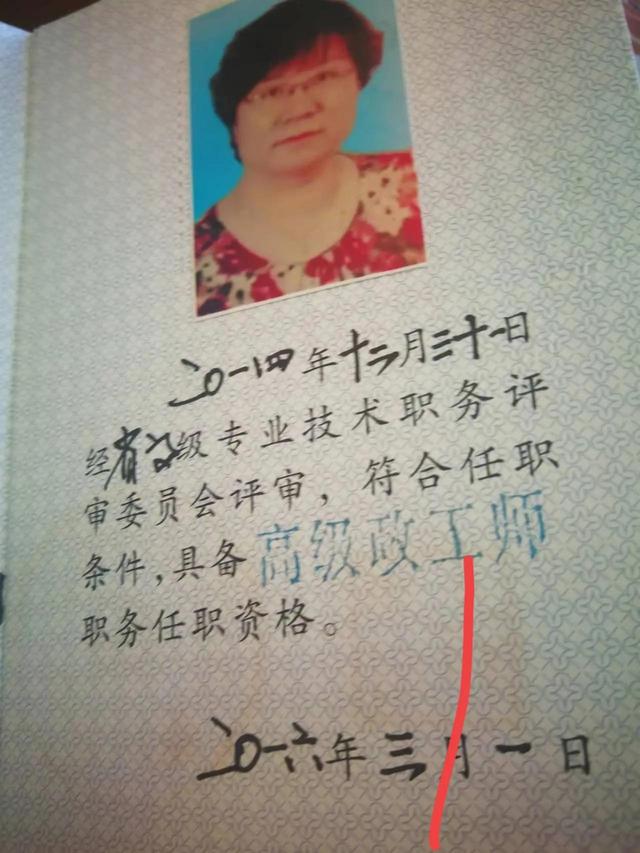 二〇一四年十二月三十一日
经省高级专业技术职务评
审委员会评审，符合任职
条件，具备高级政工师
职务任职资格。
二〇一六年三月一日